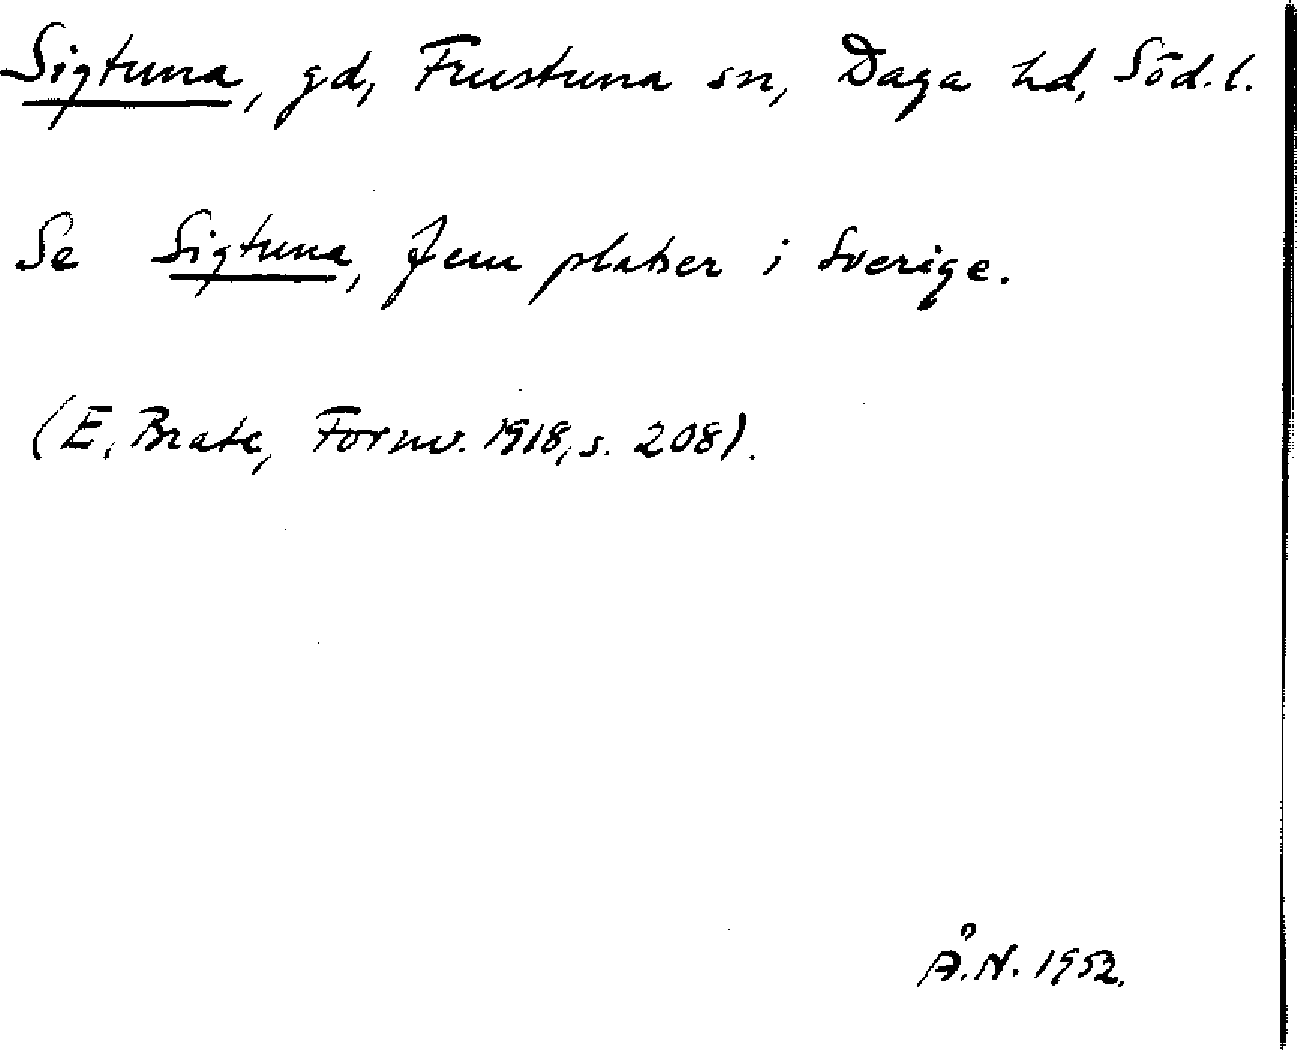 Sigtuna, gd, Frustuna sn, Daga hd, Söd. l.
Se Sigtuna, fem platser i Sverige.
(E. Brate, Fornv. 1918, s. 208).
Å.N. 1952.